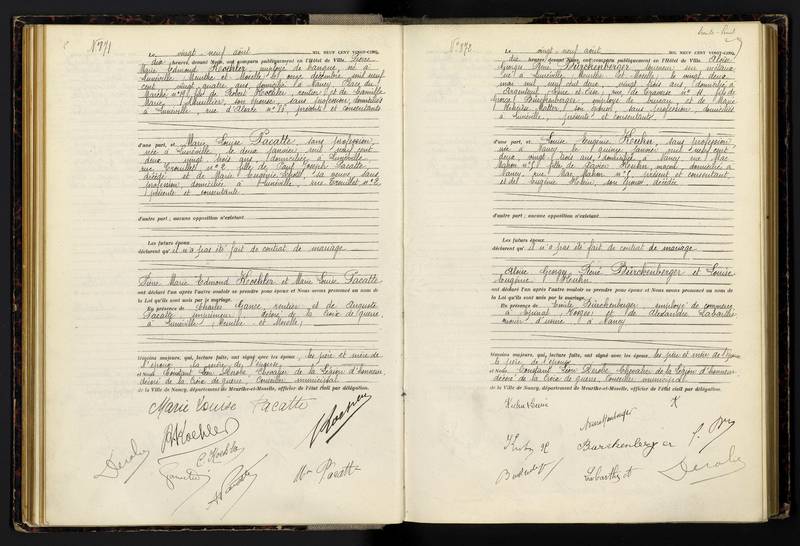 N° 871
Le vingt-neuf août MIL NEUF CENT VINGT-CINQ,
dix heures, devant Nous, ont comparu publiquement en l'Hôtel de Ville.
Marie Edmond Koehler, employé de banque, né à
Lunéville, Meurthe et Moselle, le onze décembre mil neuf
cent, vingt quatre ans, domicilié à Nancy, Place du
Marché n° 9, fils de Robert Koehler, rentier, et de Camille
Marie, son épouse, sans profession, domiciliés
à Lunéville, rue d'Alsace n° 75, présents et consentants
d'une part, et Marie Louise Pacatte, sans profession,
née à Lunéville, le deux janvier mil neuf cent
deux, vingt trois ans, domiciliée à Lunéville,
rue n° 2, fille de Paul Joseph Pacatte,
décédé et de Marie Eugénie sa veuve, sans
profession, domiciliée à Lunéville, rue n° 2,
présente et consentante
d'autre part ; aucune opposition n'existant
Les futurs époux
déclarent qu'il n'a pas été fait de contrat de mariage
Marie Edmond Koehler et Marie Louise Pacatte
ont déclaré l'un après l'autre vouloir se prendre pour époux et Nous avons prononcé au nom de
la Loi qu'ils sont unis par le mariage.
En présence de Charles rentier et de Auguste
Pacatte décoré de la Croix de guerre,
à Lunéville (Meurthe et Moselle)
témoins majeurs, qui, lecture faite, ont signé avec les époux, les père et mère de
l'époux, la mère de l'épouse
et Nous, Constant Léon Derobe, Chevalier de la Légion d'honneur,
décoré de la Croix de guerre, Conseiller municipal
de la Ville de Nancy, département de Meurthe-et-Moselle, officier de l'état civil par délégation.
Marie Louise Pacatte
Koehler
C. Koehler
Derobe
Pacatte
N° 872
Le vingt-neuf août MIL NEUF CENT VINGT-CINQ,
dix heures, devant Nous, ont comparu publiquement en l'Hôtel de Ville. Aloïse
Georges René Bürckenberger, tourneur sur métaux,
né à Lunéville, Meurthe et Moselle, le vingt deux
mai mil neuf cent deux, vingt trois ans, domicilié à
Argenteuil, Seine et Oise, rue de n° 10, fils de
Bürckenberger, employé de bureau, et de Marie
son épouse, sans profession, domiciliés
à Lunéville, présents et consentants
d'une part, et Louise Eugénie sans profession,
née à Nancy, le quinze janvier mil neuf cent
deux, vingt trois ans, domiciliée à Nancy, rue Mac
Mahon n° fille de maçon, domicilié à
Nancy, rue Mac Mahon n° présent et consentant,
et de Eugénie son épouse, décédée
d'autre part ; aucune opposition n'existant
Les futurs époux
déclarent qu'il n'a pas été fait de contrat de mariage
Aloïse Georges René Bürckenberger et Louise
Eugénie
ont déclaré l'un après l'autre vouloir se prendre pour époux et Nous avons prononcé au nom de
la Loi qu'ils sont unis par le mariage.
En présence de Emile Bürckenberger, employé de commerce,
à Epinal, Vosges, et de Alexandre Labarthe
à Nancy
témoins majeurs, qui, lecture faite, ont signé avec les époux, les père et mère de l'époux,
le père de l'épouse
et Nous, Constant Léon Derobe, Chevalier de la Légion d'honneur,
décoré de la Croix de guerre, Conseiller municipal
de la Ville de Nancy, département de Meurthe-et-Moselle, officier de l'état civil par délégation.
Burckenberger
Derobe